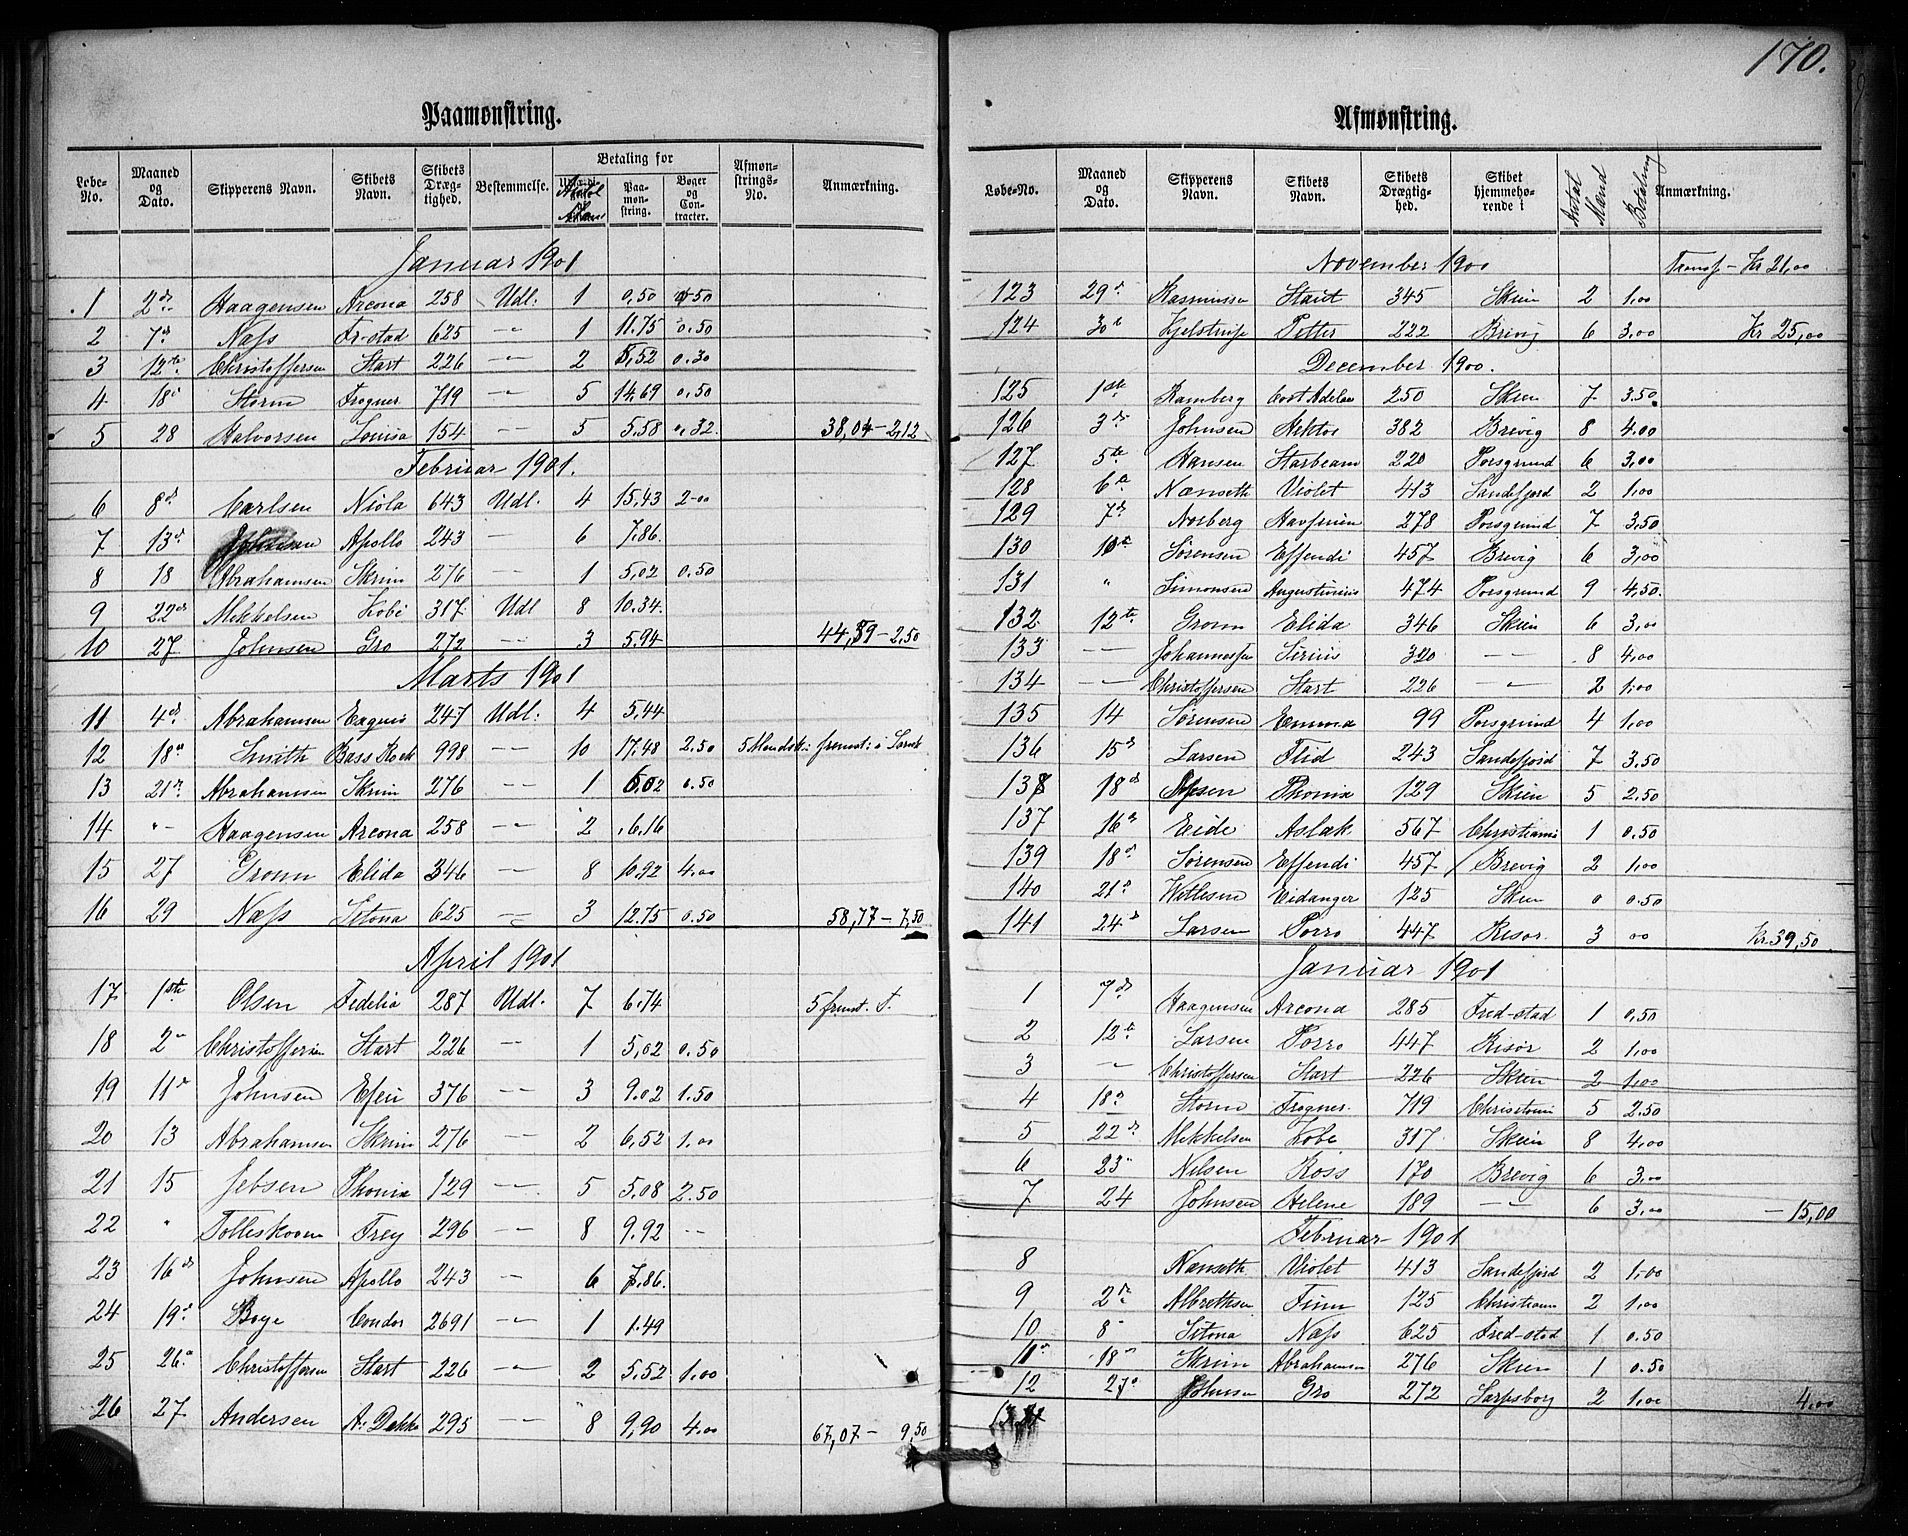 170.
Paamønstring.
Løbe-No. Maaned og Dato. Skipperens Navn. Skibets Navn. Skibets Dræg-tighed. Bestemmelse. Betaling for Antal Paa-mon-string. Bøger og Con-tracter. Afmøn-strings-No. Anmærkning.
Januar 1901
1 2d Haagensen Arcona 258 Udl. 1 0,50 0,50
2 7d Næss Fr-stad 625 -"- 1 11.75 0.50
3 12te Christoffersen Start 226 -"- 2 5,52 0.30
4 18d Storm Frogner 719 -"- 5 14,69 0,50
5 28 Halvorsen Lovisa 154 -"- 5 5.58 0.32 38,04-2,12
Februar 1901.
6 8d Carlsen Niola 643 Udl. 4 15.43 2.00
7 13d Johnsen Apollo 243 - 6 7.86
8 18 Abrahamsen Skrim 276 - 1 5,02 0.50
9 22d Mikkelsen Kobi 317. Udl 8 10.34.
10 27 Johnsen Gro 272 -"- 3 5.94 44,59-2,50
Marts 1901
11 4d Abrahamsen 247 Udl: 4 5.44
12 18d Smith Bass Rock 998 -"- 10 17.48 2.50
13 21d Abrahamsen Skrim 276 -"- 1 5.02 0.50
14 "- Haagensen Arcona 258 -"- 2 6.16
15 27 Gronn Elida 346 -"- 8 10.92 4.00
16 29 Næss Sitona 625 -"- 3 12.75 0.50 58,77-7,50
April 1901
17 1ste Olsen Fedelia 287 Udl. 7 6.74 5 fremt. T.
18 2d Christoffersen Start 226 -"- 1 5,02 0.50
19 11d Johnsen Efeu 376 -"- 3 9.02 1.50
20 13 Abrahamsen Skrim 276 -"- 2 6,52 1.00
21 15 Jebsen Phonix 129 -"- 5 5.08 2.50
22 " Tolleskoven Frey 296 -"- 8 9.92 --
23 16d Johnsen Apollo 243 -"- 6 7.86.
24 19d Boye Condor 2691 -"- 1 1.49
25 26d Christoffersen Start 226 -"- 2 5.52 1.00
26 27 Andersen A. Dekke 295 -"- 8 9,90 4.00 67,07-9,50
Afmønstring.
Løbe-No. Maaned og Dato. Skipperens Navn. Skibets Navn. Skibets Drægtig-hed. Skibet hjemmeho-rende i Antal Mænd Betaling Anmærkning.
November 1900 Transp- Kr 21,00
123 29d Rasmussen Staut 345 Skien 2 1,00
124 30d Kjelstrup Petter 222 Brevig 6 3,00 Kr 25,00
December 1900.
125 1ste Ramberg Cort Adelaer 250 Skien 7 3.50
126 3d Johnsen Hektor 382 Brevig 8 4.00
127 5te Hansen Starbeam 220 Porsgrund 6 3,00
128 6te Nanseth Violet 413 Sandefjord 2 1,00
129 7d Norberg Havfruen 278 Porsgrund 7 3,50
130 10de Sørensen Effendi 457 Brevig 6 3,00
131 " Simonsen Augustinius 474 Porsgrund 9 4,50.
132 12te Gronn Elida 346 Skien 6 3,00
133 -"- Johannessen Sirius 320 -"- 8 4,00
134 -"- Christoffersen Start 226 -"- 2 1.00
135 14 Sørensen Emma 99 Porsgrund 4 1,00
136 15d Larsen Flid 243 Sandefjord 7 3.50
138 18d Phonix 129 Skien 5 2.50
137 16d Eide Aslak 567 Christiania 1 0.50
139 18d Sørensen Effendi 457 Brevig 2 1,00
140 21d Willesen Eidanger 125 Skien 0 0.50
141 24d Larsen Porro 447 Risør. 3 00 Kr. 39,50
Januar 1901
1 7d Haagensen Arcona 285 Fred-stad 1 0,50
2 12te Larsen Porro 447 Risør 2 1,00
3 - Christoffersen Start 226 Skien 2 1,00
4 18d Storm Frogner. 719 Christiania 5 2.50
5 22d Mikkelsen Kobi 317. Skien 8 4,00
6 23d Nilsen Ross 170 Brevig 6 3,00
7 24 Johnsen Helene 189 -"- 6 3,00 - 15,00
Februar 1901
8 Nanseth Violet 413 Sandefjord 2 1,00
9 2d Albrethsen Finn 125 Christiania 2 1,00
10 8- Sitona Næss 625 Fred-stad 1 0.50
11 18d Skrim Abrahamsen 276 Skien 1 0.50
12 27d Johnsen Gro 272 Sarpsborg 2 1,00 4,00